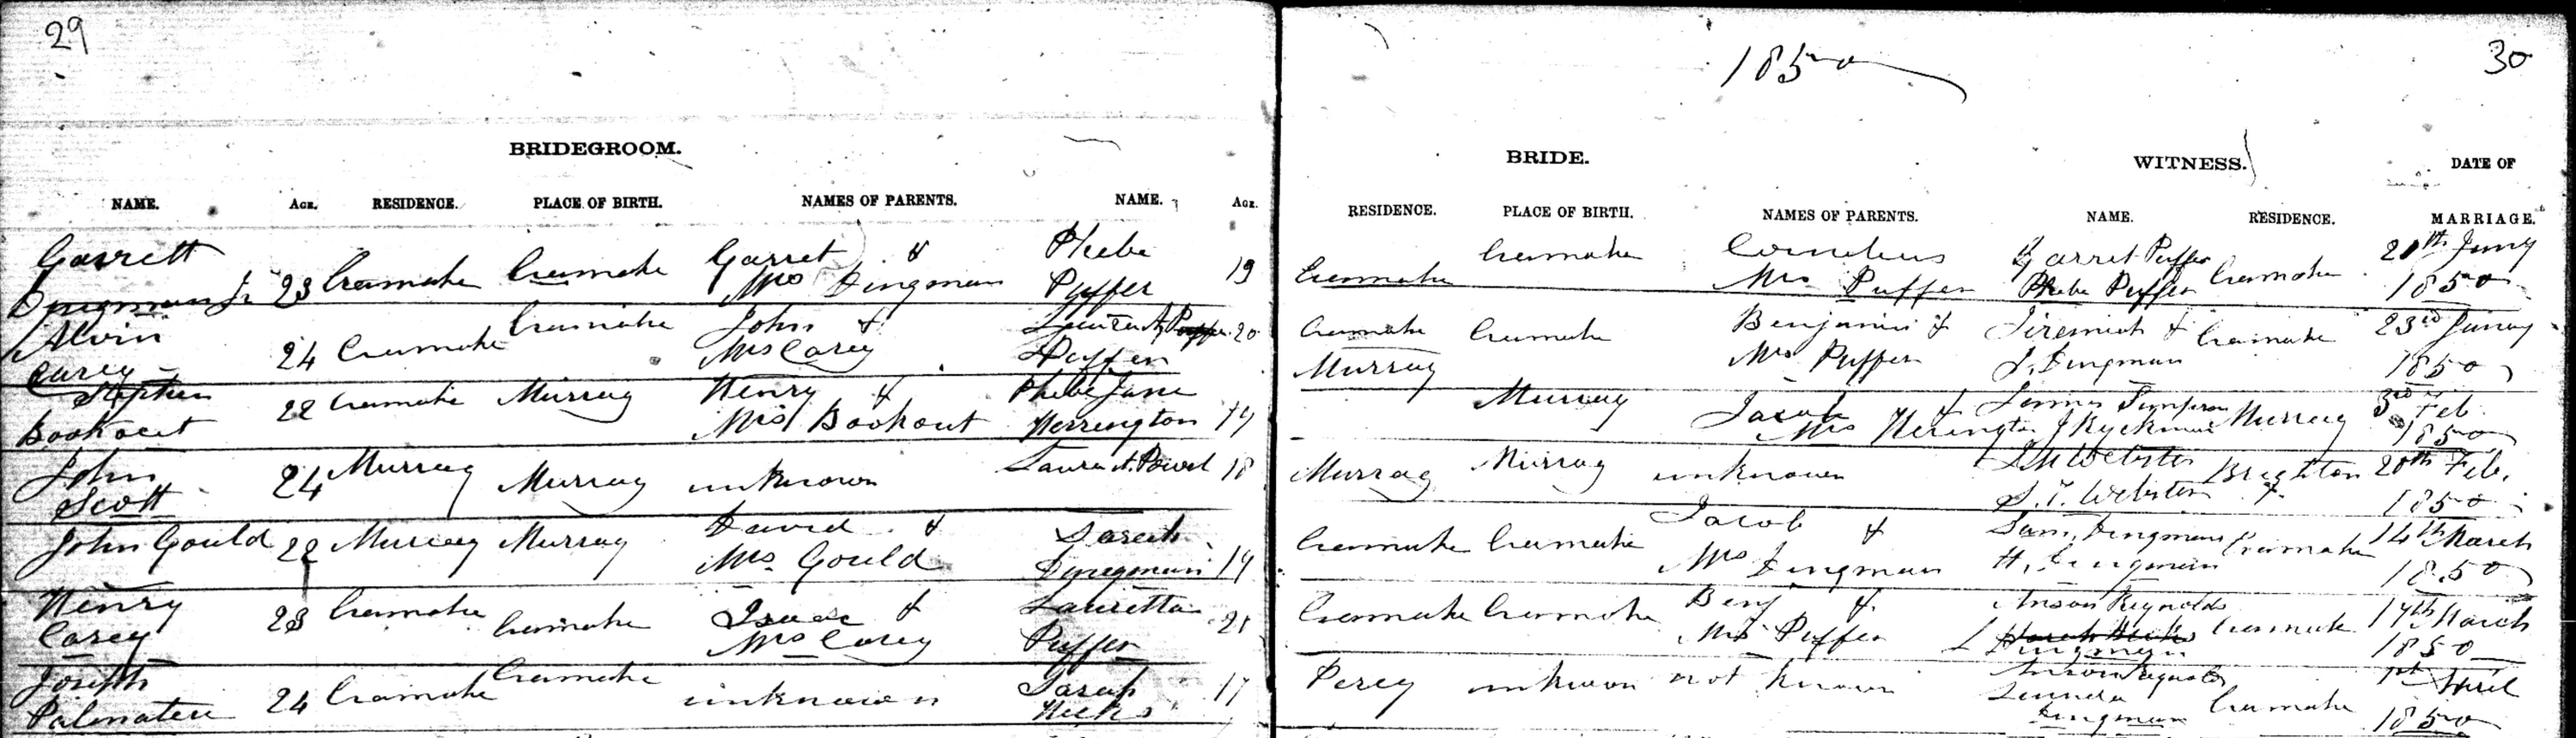 29
1850
30
BRIDEGROOM.
BRIDE.
WITNESS.
DATE OF
NAME. AGE. RESIDENCE. PLACE OF BIRTH. NAMES OF PARENTS. NAME. AGE.
RESIDENCE. PLACE OF BIRTH. NAMES OF PARENTS. NAME. RESIDENCE. MARRIAGE.
Garrett Garret & Phebe Cramahe Cornelius & Garret Puffer 20th Jany
Dingman Jr 23 Cramahe Cramahe Mrs Dingman Puffer 19 Cramahe Mrs Puffer Phebe Puffer Cramahe 1850
Alvin Cramahe John & 20 Cramahe Cramahe Benjamin & Jeremiah & Cramahe 23rd Jany
Carey 24 Cramahe Mrs Carey Puffer Murray Mrs Puffer J. Dingman 1850
Stephen 22 Cramahe Murray Henry & Phebe Jane Murray Jacob & James Simpson Murray 3rd Feb
Bookout Mrs Bookout Herrington 19 Mrs Herington J Ryckman 1850
John 24 Murray Murray unknown Laura A. Powel 18 Murray Murray unknown Webster Brighton 20th Feb.
Scott S. T. Webster 1850
John Gould 22 Murray Murray David & Sarah Cramahe Cramahe Jacob & Sam. Dingman Cramahe 14th March
Mrs. Gould Dingman 19 Mrs Dingman H. Dingman 1850
Henry 23 Cramahe Cramahe Isaac & Lauretta 21 Cramahe Cramahe Benj & Anson Reynolds Cramahe 17th March
Carey Mrs Carey Puffer Mrs Puffer L Dingman 1850
Joseph Cramahe Sarah 17 Percy unknown not known Anson Reynolds 1st April
Palmatier 24 Cramahe unknown Hicks Dingman Cramahe 1850